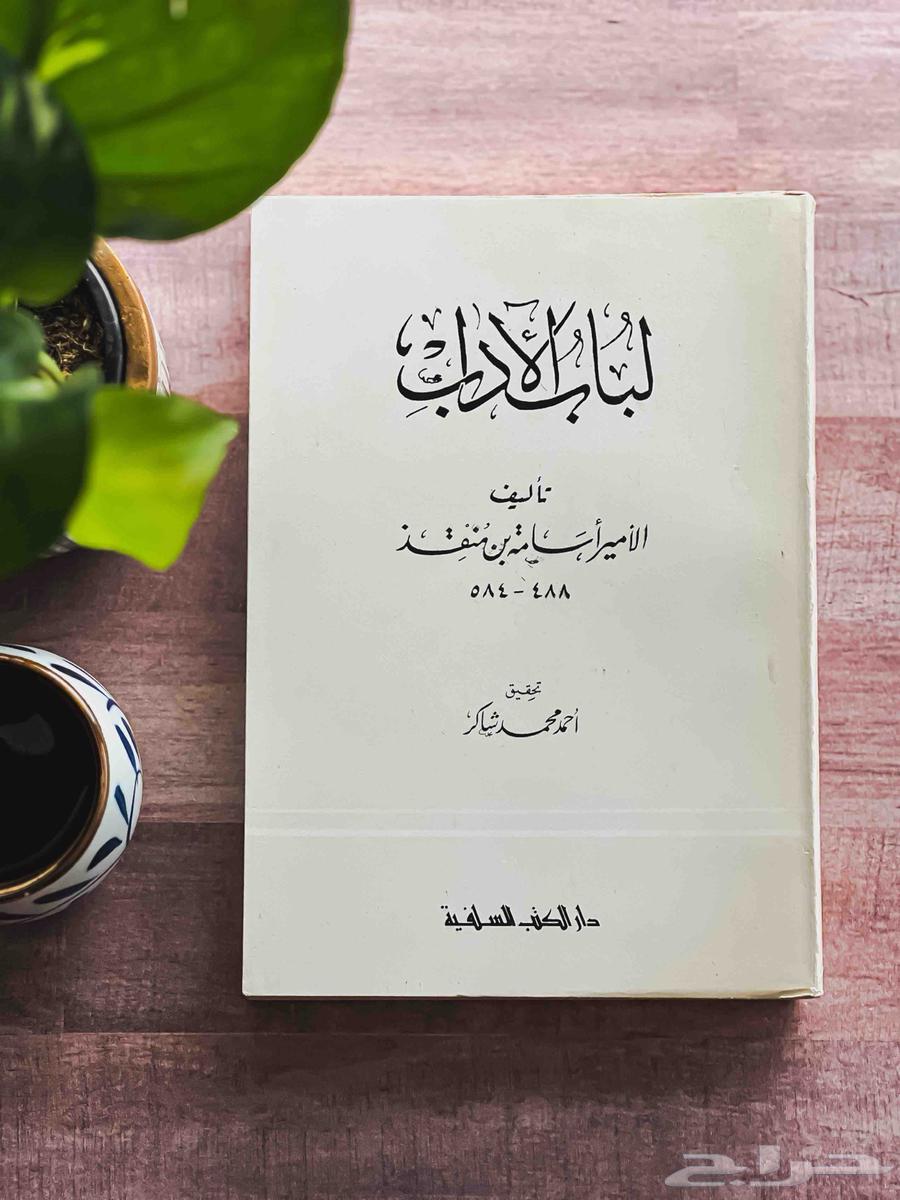 لُبَابُ الآدَابِ
تأليف
الأمير أسَامة بن مُنقِذ
٤٨٨ - ٥٨٤
تحقيق
أحمد محمد شاكر
دار الكتب السلفية
حراج